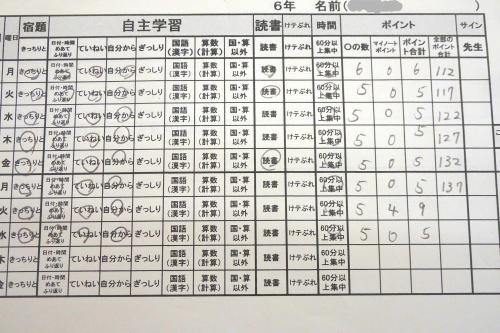 6年 名前(
曜日 宿題 自主学習 読書 けテぶれ 時間 ポイント サイン
きっちりと 日付・時間 めあて ふり返り ていねい 自分から ぎっしり 国語(漢字) 算数(計算) 国・算以外 読書 けテぶれ 60分以上集中 〇の数 マイノートポイント ポイント合計 全部のポイント合計 先生
月 きっちりと 日付・時間 めあて ふり返り ていねい 自分から ぎっしり 国語(漢字) 算数(計算) 国・算以外 読書 けテぶれ 60分以上集中 6 0 6 112
火 きっちりと 日付・時間 めあて ふり返り ていねい 自分から ぎっしり 国語(漢字) 算数(計算) 国・算以外 読書 けテぶれ 60分以上集中 5 0 5 117
水 きっちりと 日付・時間 めあて ふり返り ていねい 自分から ぎっしり 国語(漢字) 算数(計算) 国・算以外 読書 けテぶれ 60分以上集中 5 0 5 122
木 きっちりと 日付・時間 めあて ふり返り ていねい 自分から ぎっしり 国語(漢字) 算数(計算) 国・算以外 読書 けテぶれ 60分以上集中 5 0 5 127
金 きっちりと 日付・時間 めあて ふり返り ていねい 自分から ぎっしり 国語(漢字) 算数(計算) 国・算以外 読書 けテぶれ 60分以上集中 5 0 5 132
月 きっちりと 日付・時間 めあて ふり返り ていねい 自分から ぎっしり 国語(漢字) 算数(計算) 国・算以外 読書 けテぶれ 60分以上集中 5 0 5 137
火 きっちりと 日付・時間 めあて ふり返り ていねい 自分から ぎっしり 国語(漢字) 算数(計算) 国・算以外 読書 けテぶれ 60分以上集中 5 4 9
水 きっちりと 日付・時間 めあて ふり返り ていねい 自分から ぎっしり 国語(漢字) 算数(計算) 国・算以外 読書 けテぶれ 60分以上集中 5 0 5
木 きっちりと 日付・時間 めあて ふり返り ていねい 自分から ぎっしり 国語(漢字) 算数(計算) 国・算以外 読書 けテぶれ 60分以上集中
金 きっちりと 日付・時間 めあて ふり返り ていねい 自分から ぎっしり 国語(漢字) 算数(計算) 国・算以外 読書 けテぶれ 60分以上集中